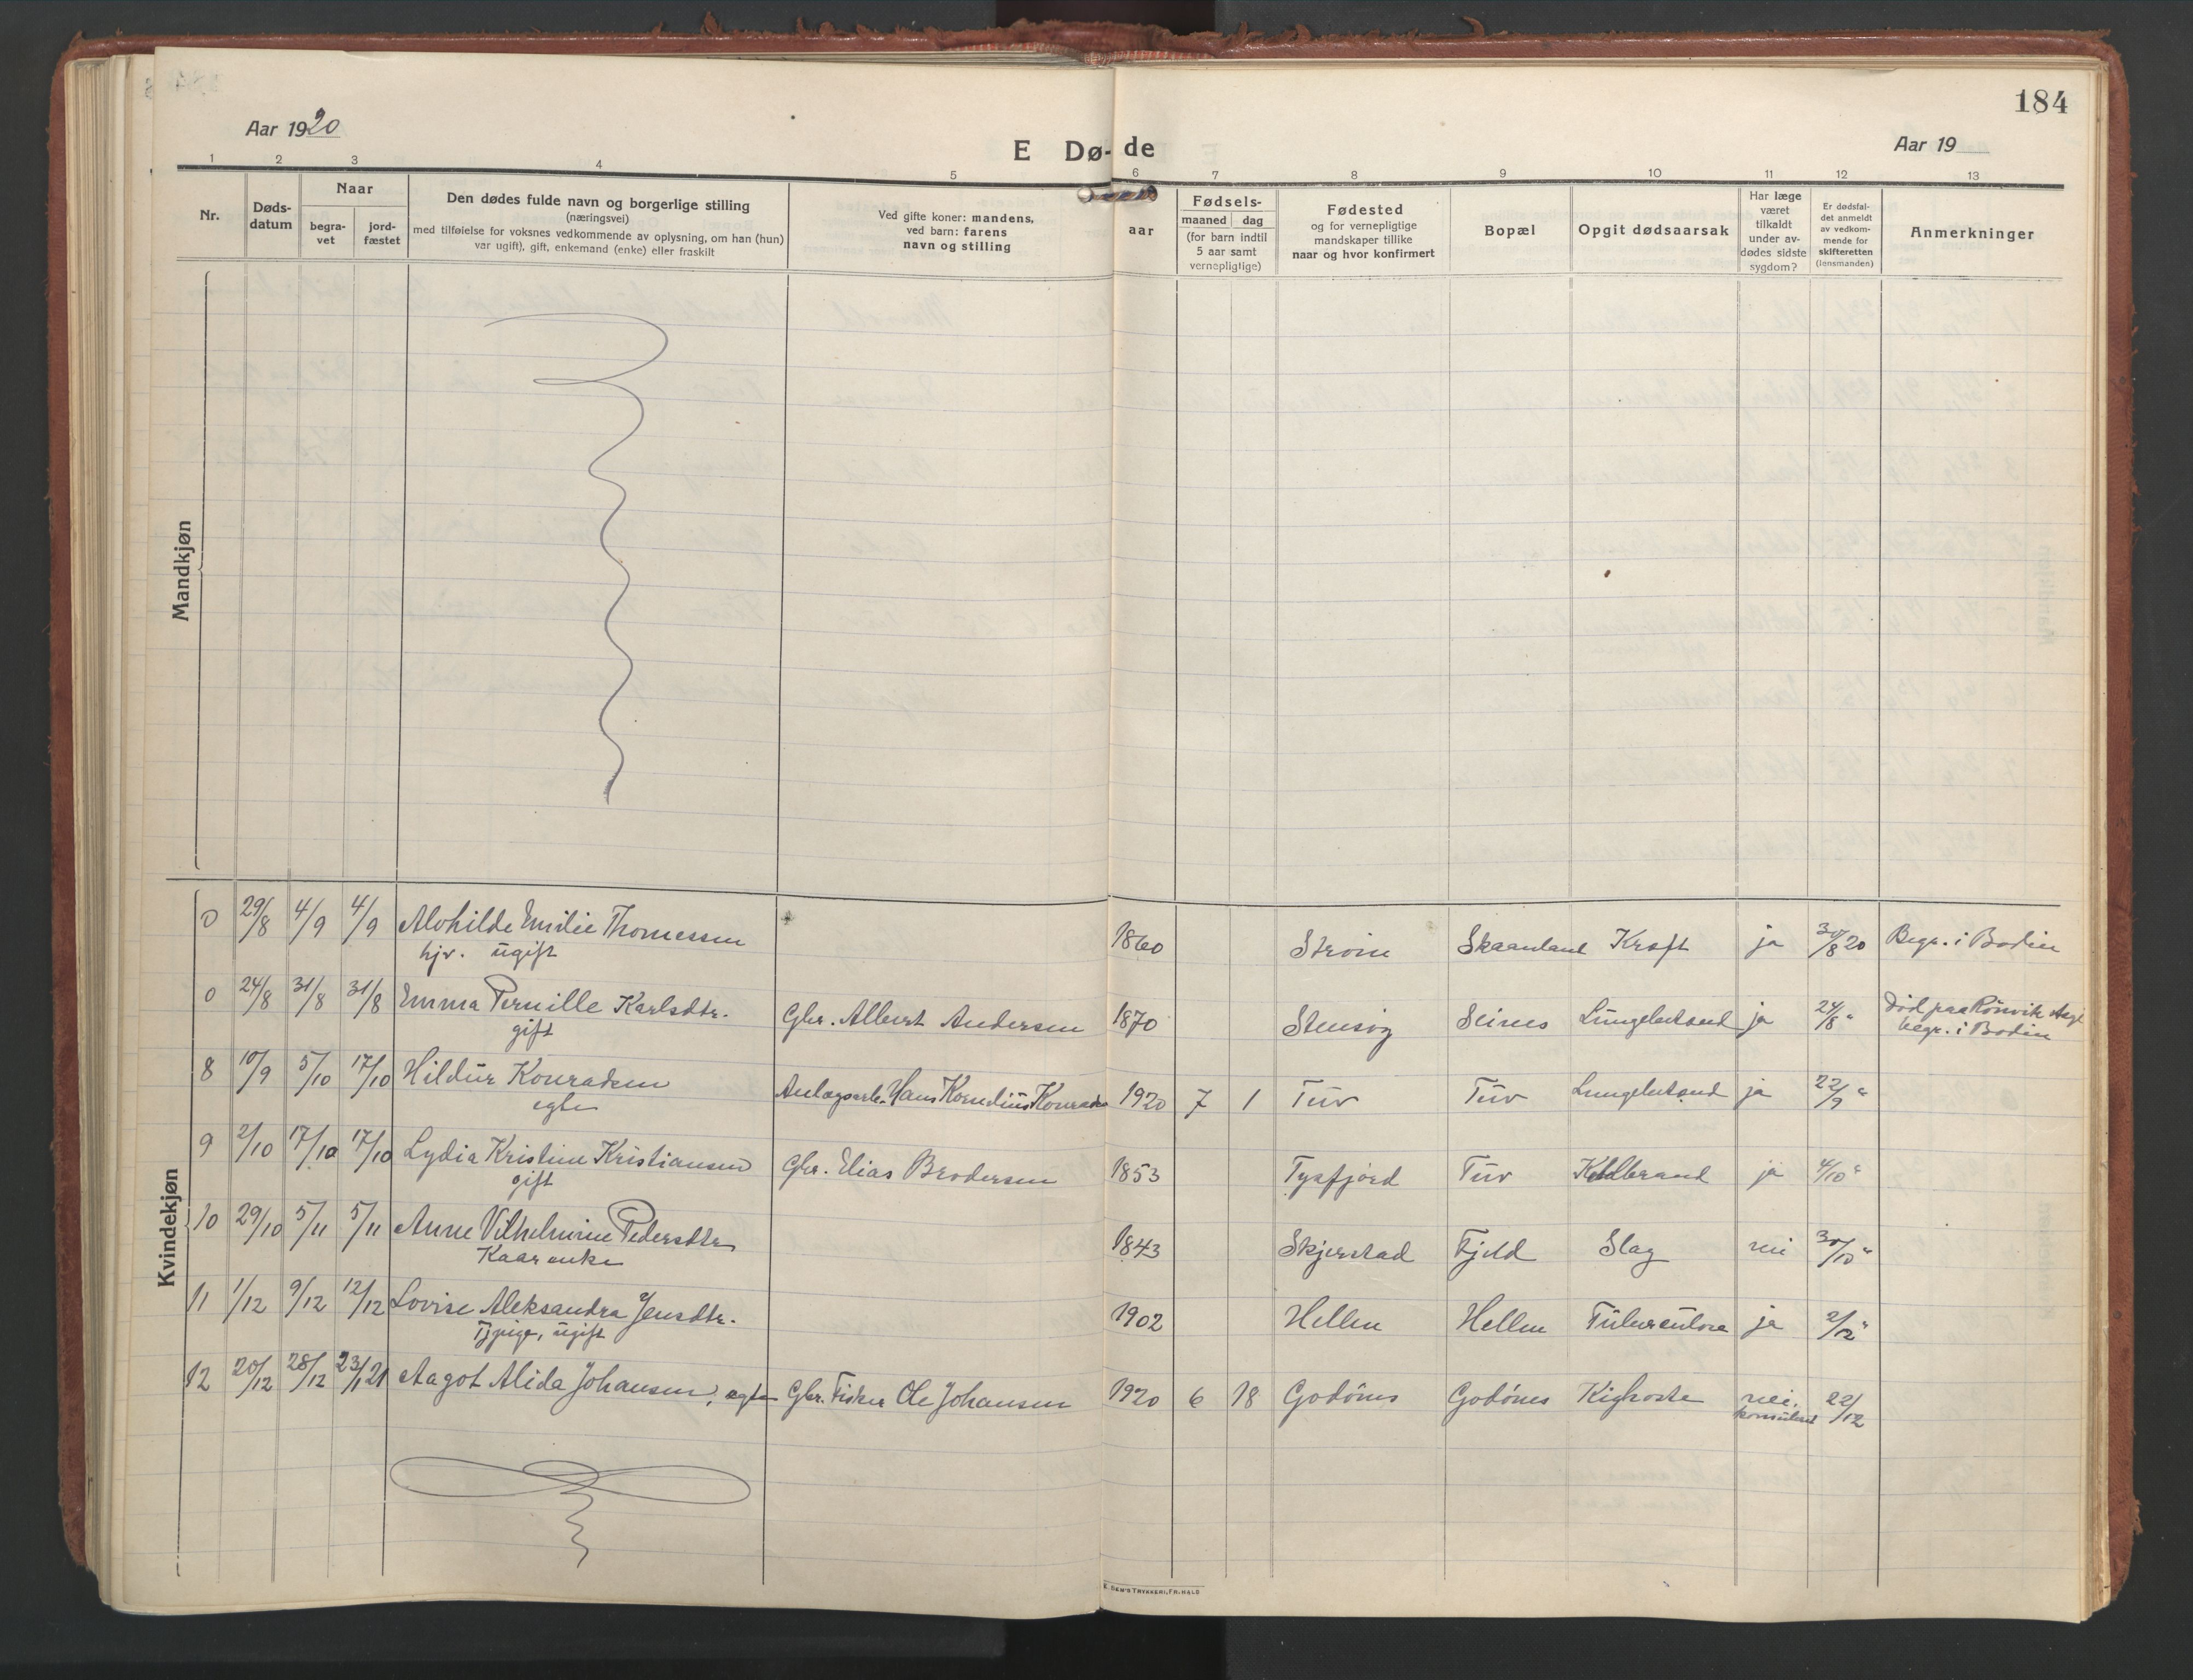 184
Aar 1920
E Dø- de
Aar 19
1 2 3 4 5 6 7 8 9 10 11 12 13
Nr.
Døds-
datum
Naar
begra-
vet
jord-
fæstet
Den dødes fulde navn og borgerlige stilling
(næringsvei)
med tilføielse for voksnes vedkommende av oplysning, om han (hun)
var ugift), gift, enkemand (enke) eller fraskilt
Ved gifte koner: mandens,
ved barn: farens
navn og stilling
aar
Fødsels-
maaned dag
(for barn indtil
5 aar samt
vernepligtige)
Fødested
og for vernepligtige
mandskaper tillike
naar og hvor konfirmert
Bopæl
Opgit dødsaarsak
Har læge
været
tilkaldt
under av-
dødes sidste
sygdom?
Er dødsfal-
det anmeldt
av vedkom-
mende for
skifteretten
(lensmanden)
Anmerkninger
Mandkjøn
Kvindekjøn
0 29/8 4/9 4/9 Alvhilde Emilie Thomessen 1860 Strøm Skaanland Kræft ja 30/8 20 Begr. i Bodin
hjv. ugift
0 24/8 31/8 31/8 Emma Pernille Karlsdtr. Gbr. Albert Andersen 1870 Stensøy Seines Lungebetænd ja 24/8 " Död paa Rönvik Asyl
gift begr. i Bodin
8 10/9 5/10 17/10 Hildur Konradsen Anlægsarb. Hans Kornelius Konradsen 1920 7 1 Tuv Tuv Lungebetænd ja 22/9 "
egte
9 2/10 17/10 17/10 Lydia Kristine Kristiansen Gbr. Elias Brodersen 1853 Tysfjord Tuv Koldbrand ja 4/10 "
gift
10 29/10 5/11 5/11 Anne Vilhelmine Pedersdtr 1843 Skjerstad Fjeld Slag nei 30/10 "
Kaarenke
11 1/12 9/12 12/12 Lovise Aleksandra Jensdtr. 1902 Hellen Hellen Tuberculose ja 2/12 "
Tjpige, ugift
12 20/12 28/12 23/1 21 Aagot Alida Johansen, egte Gbr. Fisker Ole Johansen 1920 6 18 Godönes Godönes Kighoste nei, 22/12
konsulert
E. SEM'S TRYKKERI, FR.HALD